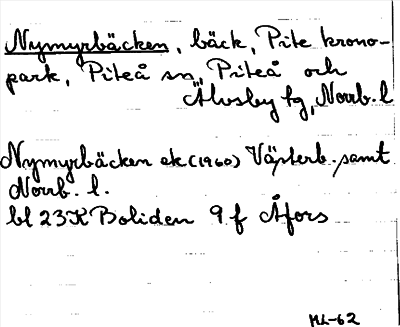 Nymyrbäcken, bäck, Pite krono-
park, Piteå sn, Piteå och
Älvsby tg, Norrb. l
Nymyrbäcken ek (1960) Västerb. samt
Norrb. l.
bl 23K Boliden 9 f Åfors
ML-62